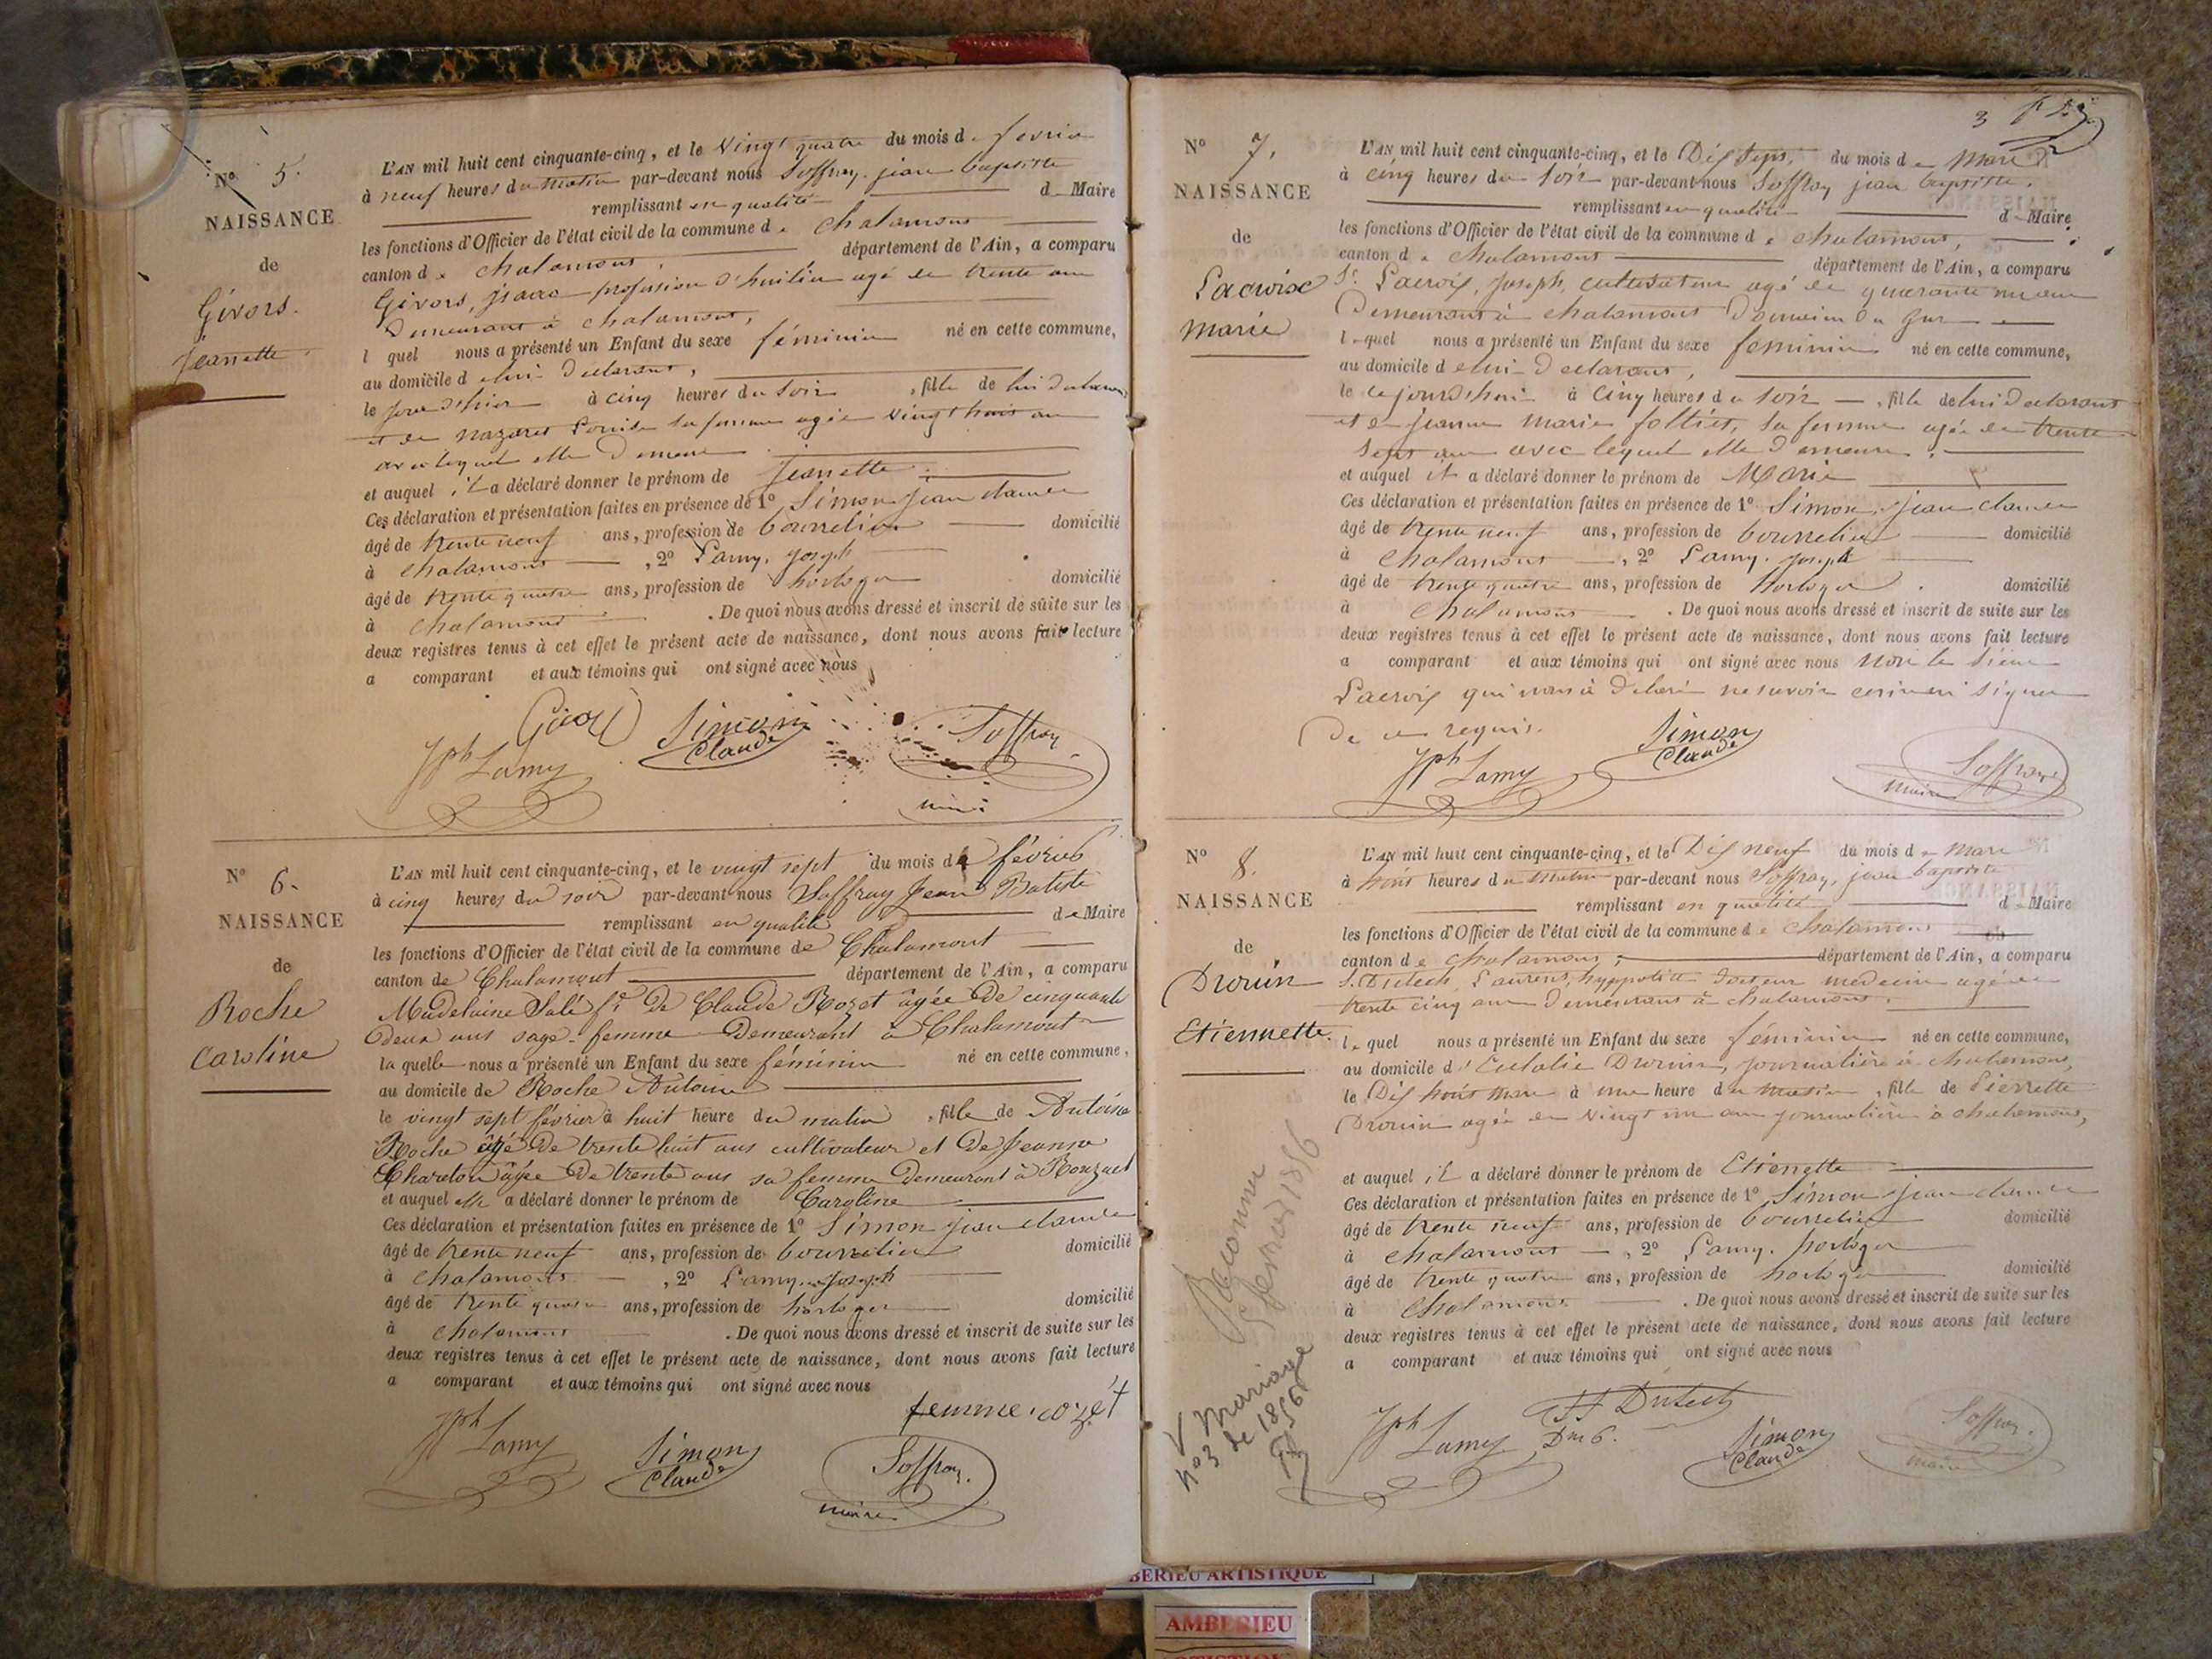 N° 5.
NAISSANCE
de
Givors.
Jeannette
L'AN mil huit cent cinquante-cinq, et le vingt quatre du mois de fevrier
à neuf heures du matin par-devant nous Soffray jean baptiste
remplissant en qualité de Maire
les fonctions d'Officier de l'état civil de la commune de chalamont
canton de chalamont, département de l'Ain, a comparu
Givors, profession d'huilier agé de trente ans
Demeurant à chalamont,
lequel nous a présenté un Enfant du sexe féminin né en cette commune,
au domicile de lui déclarant,
le jour d'hier à cinq heures du soir, fille de lui déclarant
et de Nazaret Louise sa femme agée vingt huit ans
avec lequel elle demeure
et auquel il a déclaré donner le prénom de Jeanette
Ces déclaration et présentation faites en présence de 1° Simon jean claude
âgé de trente neuf ans, profession de bourrelier domicilié
à chalamont, 2° Lamy, joseph
âgé de trente quatre ans, profession de horloger domicilié
à chalamont. De quoi nous avons dressé et inscrit de suite sur les
deux registres tenus à cet effet le présent acte de naissance, dont nous avons fait lecture
a comparant et aux témoins qui ont signé avec nous
Simon
Claude
Soffray
Jph Lamy
N° 6.
NAISSANCE
de
Roche
Caroline
L'AN mil huit cent cinquante-cinq, et le vingt sept du mois de février
à cinq heures du soir par-devant nous Soffray Jean Batiste
remplissant en qualité de Maire
les fonctions d'Officier de l'état civil de la commune de Chalamont
canton de Chalamont département de l'Ain, a comparu
Madelaine Salé fe De Claude Rozet âgée De cinquante
Deux ans sage-femme Demeurant à Chalamont
la quelle nous a présenté un Enfant du sexe féminin né en cette commune,
au domicile de Roche Antoine
le vingt sept février à huit heure du matin, fille de Antoine
Roche âgé De trente huit ans cultivateur et De Jeanne
Charelon âgée De trente ans sa femme Demeurant à Ronzuel
et auquel elle a déclaré donner le prénom de Caroline
Ces déclaration et présentation faites en présence de 1° Simon jean claude
âgé de trente neuf ans, profession de bourrelier domicilié
à chalamont, 2° Lamy Joseph
âgé de trente quatre ans, profession de horloger domicilié
à chalamont. De quoi nous avons dressé et inscrit de suite sur les
deux registres tenus à cet effet le présent acte de naissance, dont nous avons fait lecture
a comparant et aux témoins qui ont signé avec nous
femme rozet
Jph Lamy
Simon
Claude
Soffray.
maire
3
N° 7.
NAISSANCE
de
Lacroix
Marie
L'AN mil huit cent cinquante-cinq, et le Dix sept, du mois de mars
à cinq heures du soir par-devant nous Soffray jean baptiste.
remplissant en qualité de Maire
les fonctions d'Officier de l'état civil de la commune de chalamont,
canton de chalamont département de l'Ain, a comparu
Sr. Lacroix, Joseph, cultivateur agé de quarante un ans
Demeurant à chalamont Domaine Du
lequel nous a présenté un Enfant du sexe feminin né en cette commune,
au domicile de lui déclarant,
le ce jourd'hui à cinq heures du soir, fille de lui déclarant
et de jeanne marie folliet, sa femme agée de trente
sept ans avec lequel elle demeure.
et auquel il a déclaré donner le prénom de Marie
Ces déclaration et présentation faites en présence de 1° Simon, jean claude
âgé de trente neuf ans, profession de bourrelier domicilié
à chalamont, 2° Lamy. joseph
âgé de trente quatre ans, profession de horloger. domicilié
à chalamont. De quoi nous avons dressé et inscrit de suite sur les
deux registres tenus à cet effet le présent acte de naissance, dont nous avons fait lecture
a comparant et aux témoins qui ont signé avec nous non le sieur
Lacroix qui nous a déclaré ne savoir écrire ni signer
De ce requis.
Simon
Claude
Jph Lamy
Soffray
maire
N° 8.
NAISSANCE
de
Drouin
Etiennette.
L'AN mil huit cent cinquante-cinq, et le Dix neuf du mois de mars
à huit heures du matin par-devant nous Soffray, jean baptiste
remplissant en qualité de Maire
les fonctions d'Officier de l'état civil de la commune de chalamont
canton de chalamont, département de l'Ain, a comparu
S. Dutech, Laurent, hyppolite docteur medecin agé de
trente cinq ans demeurant à chalamont.
lequel nous a présenté un Enfant du sexe féminin né en cette commune,
au domicile d'Eulalie Drouin, journalière à chalamont,
le Dix huit mars à une heure du matin, fille de Pierrette
Drouin agée de vingt un ans journalière à chalamont,
et auquel il a déclaré donner le prénom de Etienette
Ces déclaration et présentation faites en présence de 1° Simon jean claude
âgé de trente neuf ans, profession de bourrelier domicilié
à chalamont, 2° Lamy. horloger
âgé de trente quatre ans, profession de horloger domicilié
à chalamont. De quoi nous avons dressé et inscrit de suite sur les
deux registres tenus à cet effet le présent acte de naissance, dont nous avons fait lecture
a comparant et aux témoins qui ont signé avec nous
Reconnue
5 février 1856
V Mariage
n° 3 de 1856
Jph Lamy
Dutech
Dm
Simon
Claude
Soffray.
maire
BERIEU ARTISTIQUE
AMBERIEU